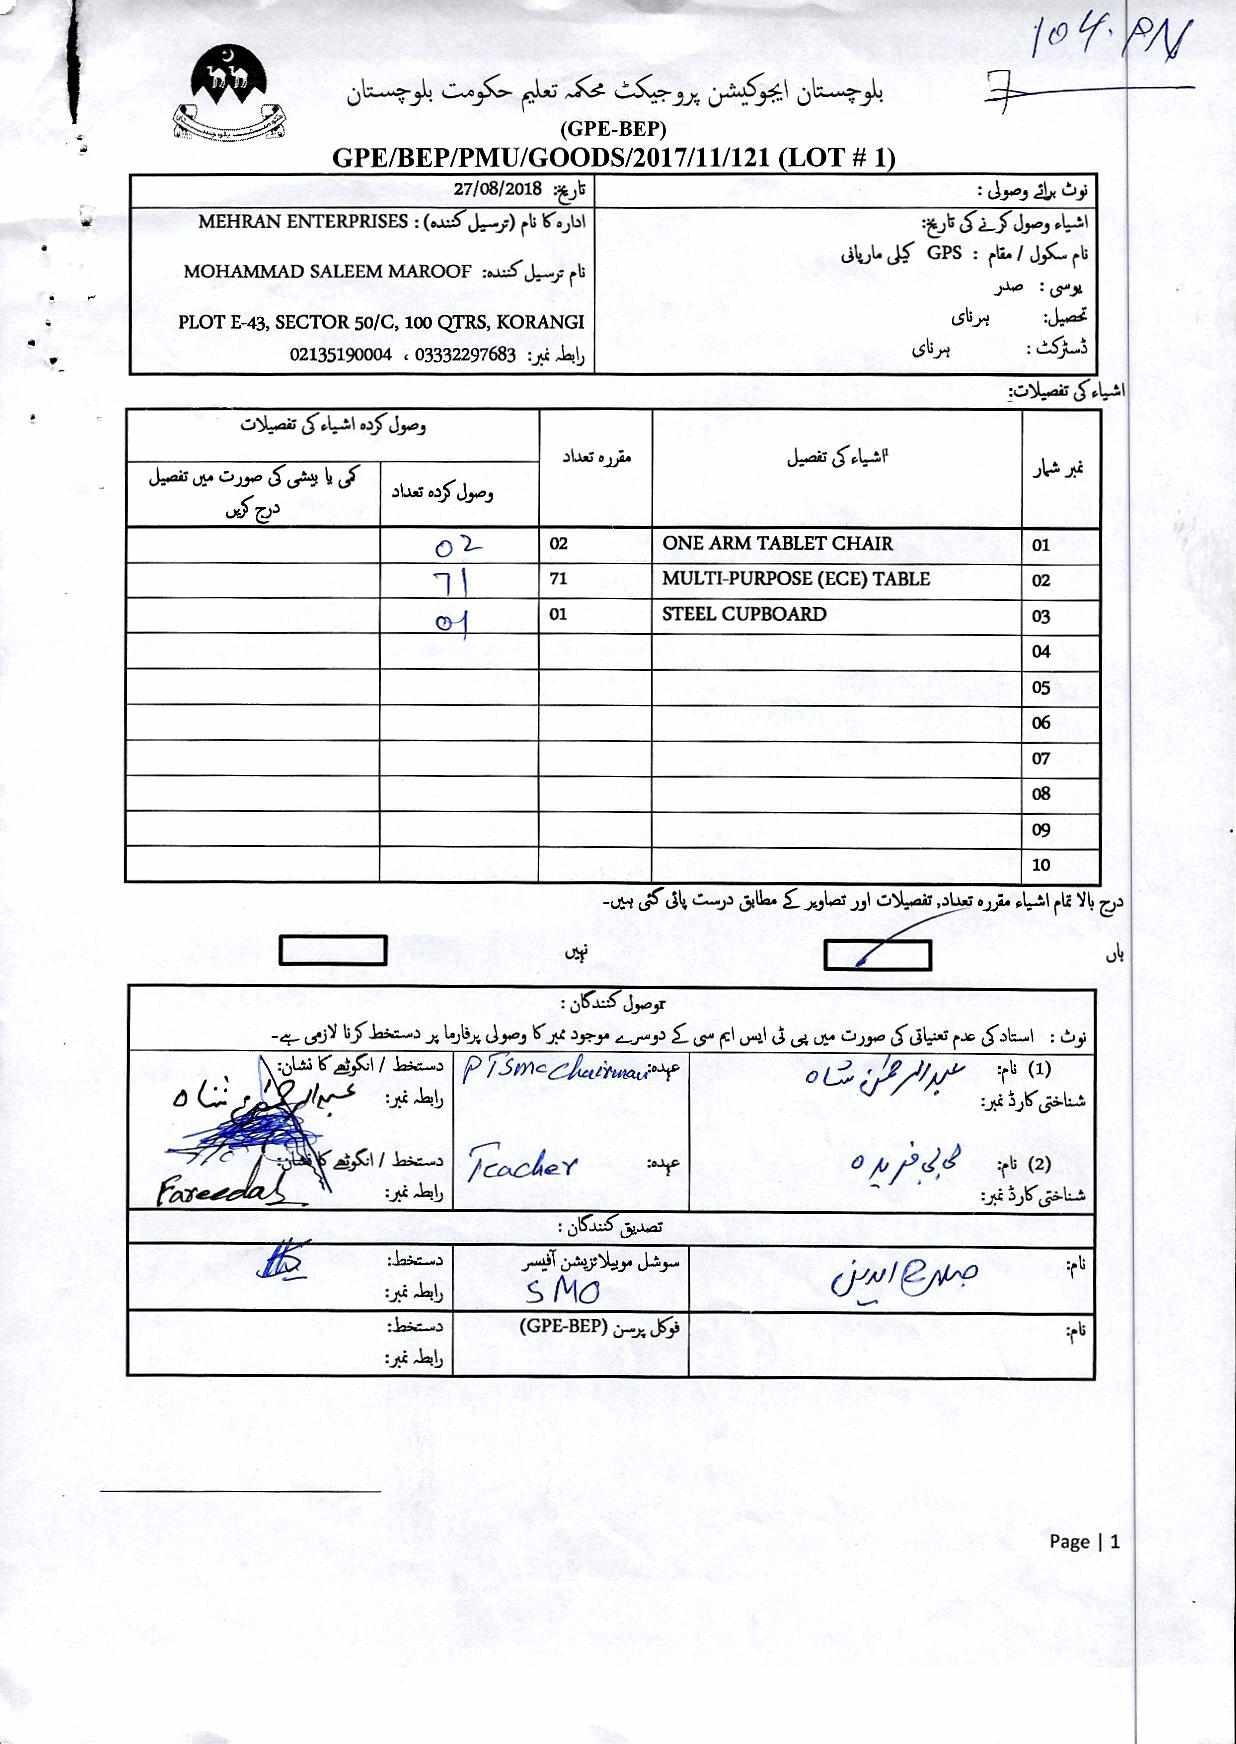 104. PN
7
بلوچستان ایجوکیشن پروجیکٹ محکمہ تعلیم حکومت بلوچستان
(GPE-BEP)
GPE/BEP/PMU/GOODS/2017/11/121 (LOT # 1)
نوٹ برائے وصولی :
تاریخ: 27/08/2018
اشیاء وصول کرنے کی تاریخ:
نام سکول / مقام : GPS کیلی ماریانی
یوسی : صدر
تحصیل: ہرنای
ڈسٹرکٹ : ہرنای
ادارہ کا نام (ترسیل کنندہ) : MEHRAN ENTERPRISES
نام ترسیل کنندہ: MOHAMMAD SALEEM MAROOF
PLOT E-43, SECTOR 50/C, 100 QTRS, KORANGI
رابطہ نمبر: 03332297683 ، 02135190004
اشیاء کی تفصیلات:
نمبر شمار اشیاء کی تفصیل مقررہ تعداد وصول کردہ اشیاء کی تفصیلات
وصول کردہ تعداد کمی یا بیشی کی صورت میں تفصیل درج کریں
01 ONE ARM TABLET CHAIR 02 02
02 MULTI-PURPOSE (ECE) TABLE 71 71
03 STEEL CUPBOARD 01 01
04
05
06
07
08
09
10
درج بالا تمام اشیاء مقررہ تعداد, تفصیلات اور تصاویر کے مطابق درست پائی گئی ہیں۔
ہاں نہیں
وصول کنندگان :
نوٹ : استاد کی عدم تعنیاتی کی صورت میں پی ٹی ایس ایم سی کے دوسرے موجود ممبر کا وصولی پرفارما پر دستخط کرنا لازمی ہے۔
(1) نام: عبدالرحمٰن شاہ عہدہ: PTSMC Chairman دستخط / انگوٹھے کا نشان: عبدالرحمٰن شاہ
شناختی کارڈ نمبر: رابطہ نمبر:
(2) نام: بی بی فریدہ عہدہ: Teacher دستخط / انگوٹھے کا نشان:
شناختی کارڈ نمبر: رابطہ نمبر: Fareedah
تصدیق کنندگان :
نام: صلاح الدین سوشل موبیلائزیشن آفیسر دستخط:
SMO رابطہ نمبر:
نام: فوکل پرسن (GPE-BEP) دستخط:
رابطہ نمبر:
Page | 1